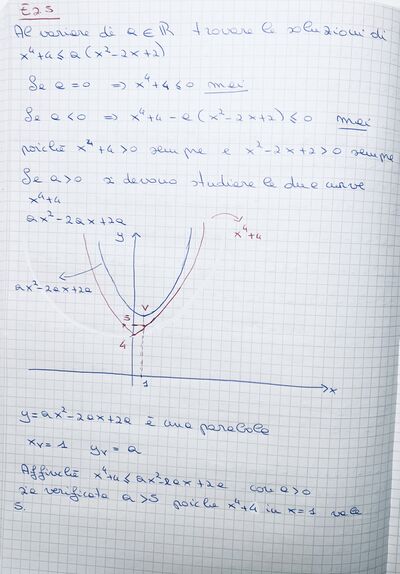 E25
Al variare di a ∈ ℝ trovare le soluzioni di
x⁴+4 ≤ a(x²-2x+2)
Se a=0 ⇒ x⁴+4 ≤ 0 mai
Se a<0 ⇒ x⁴+4 - a(x²-2x+2) ≤ 0 mai
poiché x⁴+4>0 sempre e x²-2x+2>0 sempre
Se a>0 si devono studiare le due curve
x⁴+4
ax²-2ax+2a
y
x⁴+4
ax²-2ax+2a
V
5
4
1
x
y=ax²-2ax+2a è una parabola
xᵥ=1 yᵥ=a
Affinché x⁴+4 ≤ ax²-2ax+2a con a>0
sia verificata a>5 poiché x⁴+4 in x=1 vale
5.